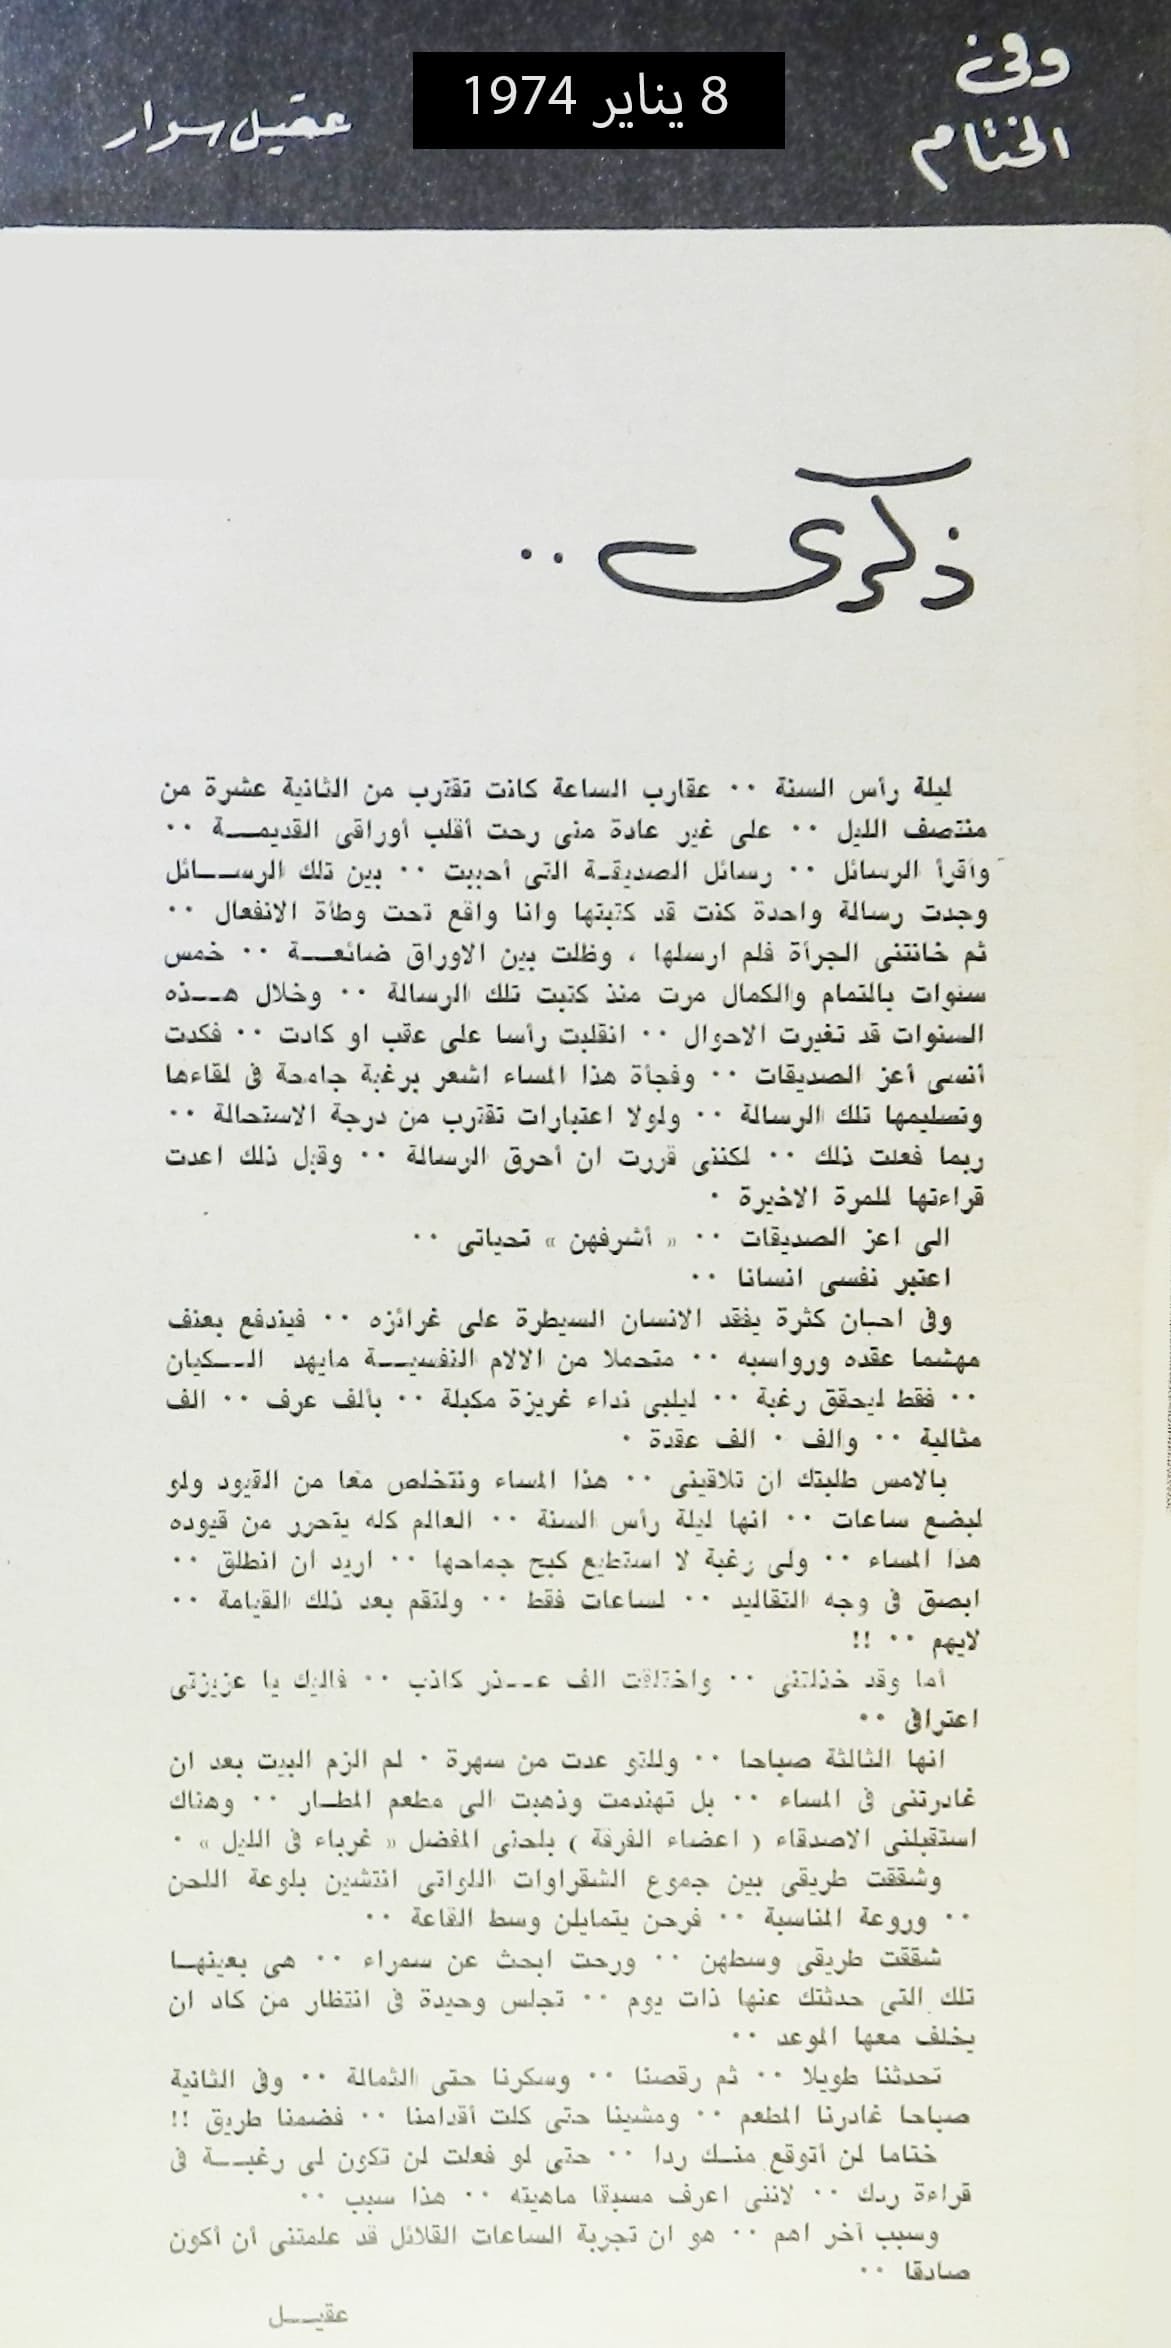 وفى
الختام
8 يناير 1974
عقيل سوار
ذكرى ..
ليلة رأس السنة .. عقارب الساعة كانت تقترب من الثانية عشرة من
منتصف الليل .. على غير عادة منى رحت أقلب أوراقى القديمـــة ..
وأقرأ الرسائل .. رسائل الصديقـة التى أحببت .. بين تلك الرســـائل
وجدت رسالة واحدة كنت قد كتبتها وانا واقع تحت وطأة الانفعال ..
ثم خانتنى الجرأة فلم ارسلها ، وظلت بين الاوراق ضائعـــة .. خمس
سنوات بالتمام والكمال مرت منذ كتبت تلك الرسالة .. وخلال هـــذه
السنوات قد تغيرت الاحوال .. انقلبت رأسا على عقب او كادت .. فكدت
أنسى أعز الصديقات .. وفجأة هذا المساء اشعر برغبة جامحة فى لقاءها
وتسليمها تلك الرسالة .. ولولا اعتبارات تقترب من درجة الاستحالة ..
ربما فعلت ذلك .. لكننى قررت ان أحرق الرسالة .. وقبل ذلك اعدت
قراءتها للمرة الاخيرة .
الى اعز الصديقات .. « أشرفهن » تحياتى ..
اعتبر نفسى انسانا ..
وفى احيان كثرة يفقد الانسان السيطرة على غرائزه .. فيندفع بعنف
مهشما عقده ورواسبه .. متحملا من الالام النفسيـــة مايهد الــكيان
.. فقط ليحقق رغبة .. ليلبى نداء غريزة مكبلة .. بألف عرف .. الف
مثالية .. والف . الف عقدة .
بالامس طلبتك ان تلاقينى .. هذا المساء ونتخلص معا من القيود ولو
لبضع ساعات .. انها ليلة رأس السنة .. العالم كله يتحرر من قيوده
هذا المساء .. ولى رغبة لا استطيع كبح جماحها .. اريد ان انطلق ..
ابصق فى وجه التقاليد .. لساعات فقط .. ولتقم بعد ذلك القيامة ..
لايهم .. !!
أما وقد خذلتنى .. واختلقت الف عـــذر كاذب .. فاليك يا عزيزتى
اعترافى ..
انها الثالثة صباحا .. وللتو عدت من سهرة . لم الزم البيت بعد ان
غادرتنى فى المساء .. بل تهندمت وذهبت الى مطعم المطـــار .. وهناك
استقبلنى الاصدقاء ( اعضاء الفرقة ) بلحنى المفضل « غرباء فى الليل » .
وشققت طريقى بين جموع الشقراوات اللواتى انتشين بلوعة اللحن
.. وروعة المناسبة .. فرحن يتمايلن وسط القاعة ..
شققت طريقى وسطهن .. ورحت ابحث عن سمراء .. هى بعينهــا
تلك التى حدثتك عنها ذات يوم .. تجلس وحيدة فى انتظار من كاد ان
يخلف معها الموعد ..
تحدثنا طويلا .. ثم رقصنا .. وسكرنا حتى الثمالة .. وفى الثانية
صباحا غادرنا المطعم .. ومشينا حتى كلت أقدامنا .. فضمنا طريق !!
ختاما لن أتوقع منــك ردا .. حتى لو فعلت لن تكون لى رغبـــة فى
قراءة ردك .. لاننى اعرف مسبقا ماهيته .. هذا سبب ..
وسبب آخر اهم .. هو ان تجربة الساعات القلائل قد علمتنى أن أكون
صادقا ..
عقيـــل